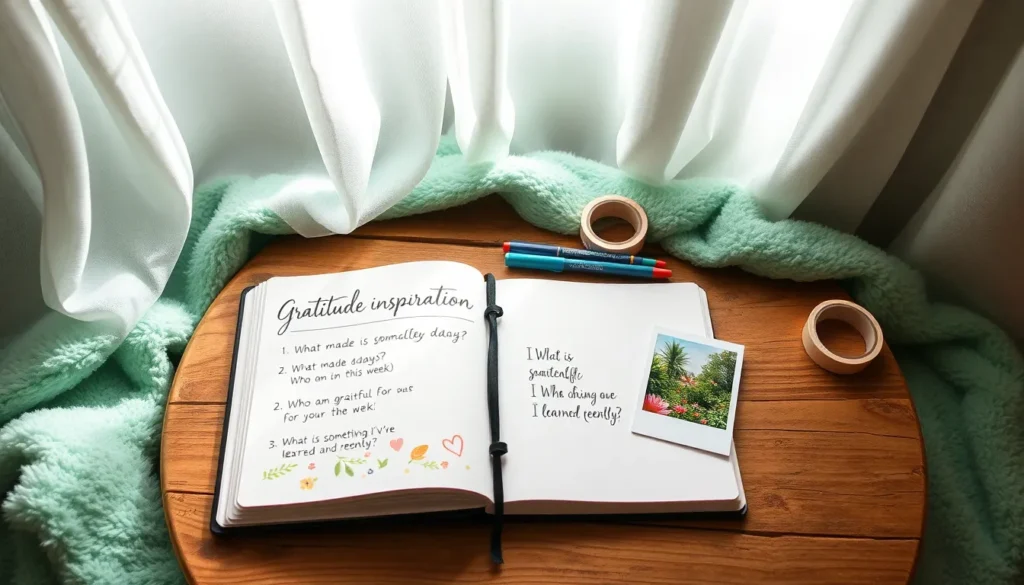 Gratitude inspiration
1. What made is somalley daay?
2. What made sdays?
Who on in this week)
2. Who am graitful for ous
for your the week!
3. What is sometiing I'v're
learred and reenlly?
I What is
I Who ching one
I learned reently?